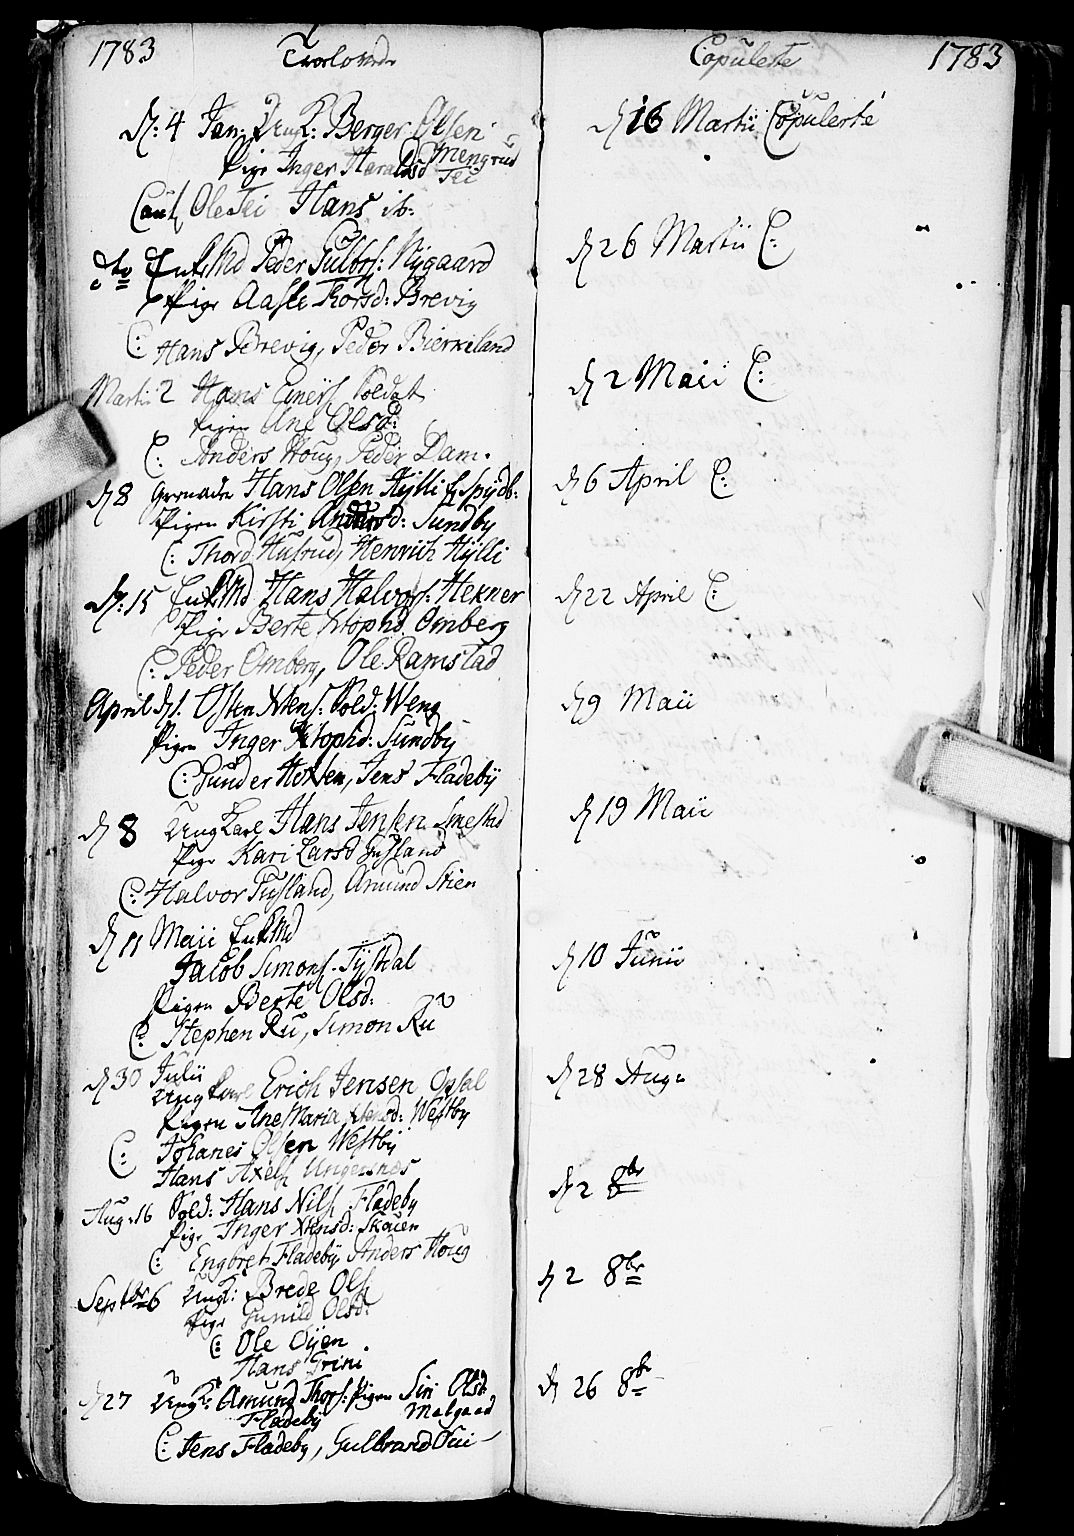 1783 Trolovede
d: 4 Jan: UngK: Berger Olsen
Pige Inger Haraldsd Mengrud
Tei
Caut OleTei Hans ib:
dto EnkeMd Peder Gulbrs: Nygaard
Pige Aasle Thorsd: Brevig
C: Hans Brevig, Peder Bierkeland
Martii 2 Hans Einers Soldat
Pigen Ane Olsd:
C: Anders Houg, Peder Dam.
d 8 Grenadr Hans Olsen Hylli Espydb:
Pigen Kirsti Andersd: Sundby
C: Thord Hufrud, Henrich Hylli
d: 15 EnkMd Hans Halvors: Hexner
Pige Berte Xtophd. Omberg
C: Peder Omberg, Ole Ramstad
April d 1. Osten Xtens: Sold: Weng
Pigen Inger Xtophd: Sundby
C: Gunder Hexten, Jens Fladeby
d 8 UngKarl Hans Jensen Smestad
Pige Kari Larsd Fusland
C: Halvor Fusland, Amund Skien
d 11 Maii EnkMd
Jacob Simons. Tystal
Pigen Berte Olsd:
C: Stephen Ru, Simon Ru
d 30 Julii
Ungkarl Erich Jensen Opsal
Pigen Ane Maria Hansd: Westby
C: Johanes Olsen Westby
Hans Axels Ungersnæs
Aug: 16 Sold: Hans Nils Fladeby
Pige Inger Xtensd: Skauen
C: Engbret Fladeby Anders Houg
Septbr 6 UngK: Brede Ols
Pige Gunild Olsd:
C: Ole Oyen
Hans Grini
d 27 UngK: Amund Thors: Pigen Siri Olsd
Fladeby Melgaad
C: Jens Fladeby, Gulbrand Tui
Copulerte 1783
d 16 Martii Copulerte
d 26 Martii C:
d 2 Maii C:
d 6 April C:
d 22 April C:
d 9 Maii
d 19 Maii
d 10 Junii
d 28 Aug:
d 2 8br
d 2 8br
d 26 8br